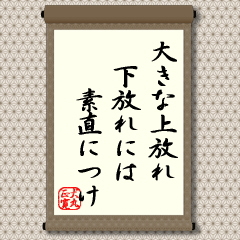 大きな上放れ
下放れには
素直につけ